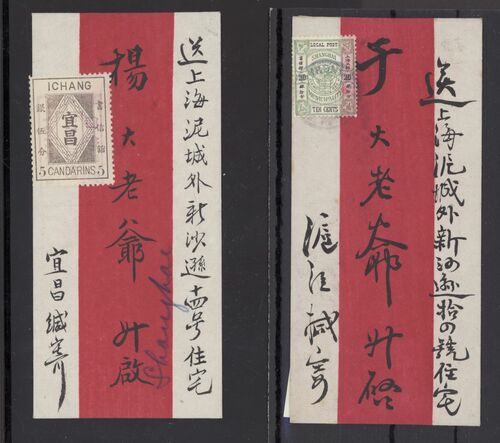 送上海泥城外新沙遜十四号住宅
ICHANG
書信館
宜昌
銀伍分
5 CANDARINS 5
楊大老爺升啟
Shanghai
宜昌缄寄
送上海泥城外新沙遜拾四號住宅
LOCAL POST
SHANGHAI
MUNICIPALITY
TEN CENTS
于大老爺升啓
滬江缄寄